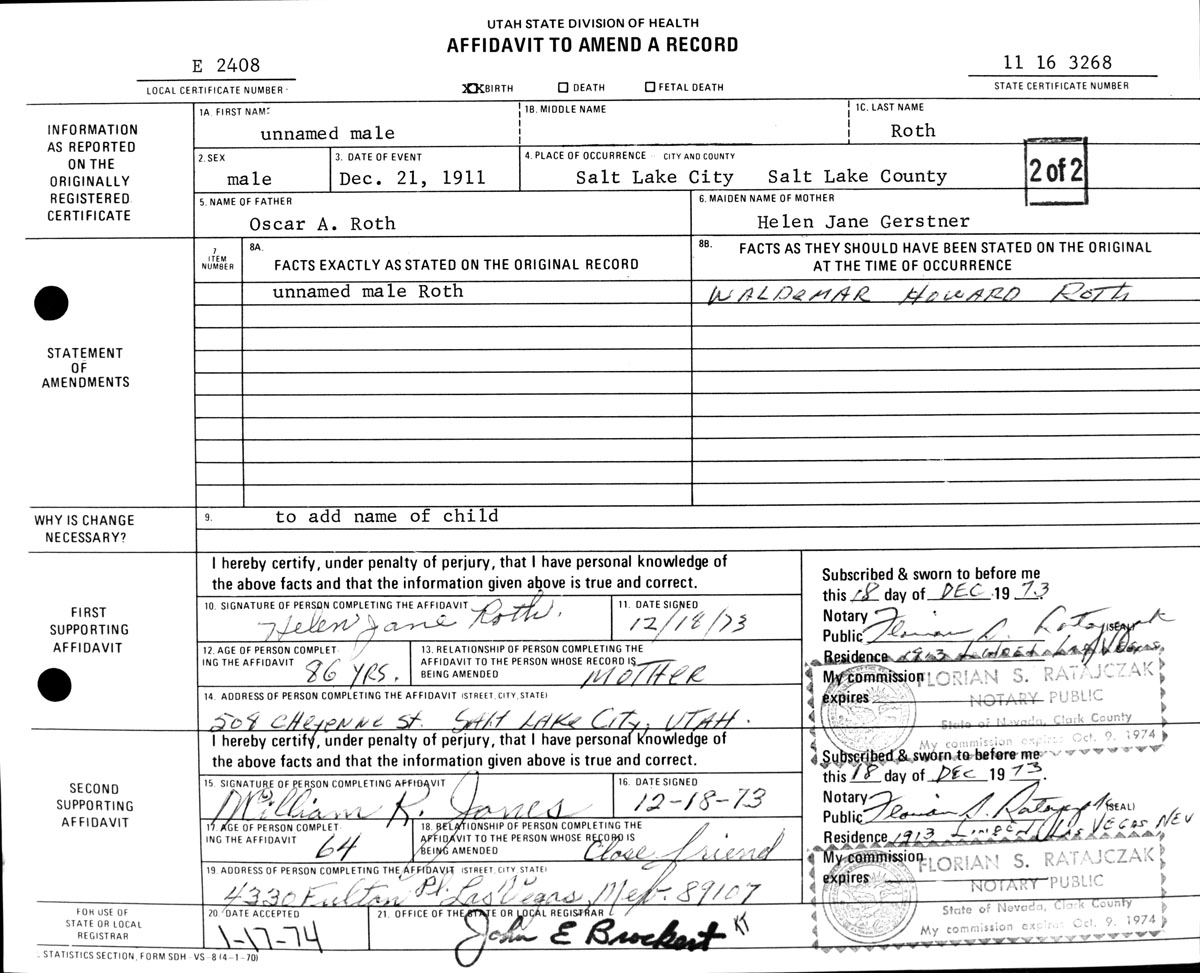 UTAH STATE DIVISION OF HEALTH
AFFIDAVIT TO AMEND A RECORD
E 2408
LOCAL CERTIFICATE NUMBER
XX BIRTH ☐ DEATH ☐ FETAL DEATH
11 16 3268
STATE CERTIFICATE NUMBER
INFORMATION AS REPORTED ON THE ORIGINALLY REGISTERED CERTIFICATE
1A. FIRST NAME 1B. MIDDLE NAME 1C. LAST NAME
unnamed male Roth
2. SEX 3. DATE OF EVENT 4. PLACE OF OCCURRENCE CITY AND COUNTY
male Dec. 21, 1911 Salt Lake City Salt Lake County
2 of 2
5. NAME OF FATHER 6. MAIDEN NAME OF MOTHER
Oscar A. Roth Helen Jane Gerstner
STATEMENT OF AMENDMENTS
7 ITEM NUMBER
8A. FACTS EXACTLY AS STATED ON THE ORIGINAL RECORD
8B. FACTS AS THEY SHOULD HAVE BEEN STATED ON THE ORIGINAL
AT THE TIME OF OCCURRENCE
unnamed male Roth WALDEMAR HOWARD ROTH
WHY IS CHANGE NECESSARY?
9. to add name of child
FIRST SUPPORTING AFFIDAVIT
I hereby certify, under penalty of perjury, that I have personal knowledge of
the above facts and that the information given above is true and correct.
10. SIGNATURE OF PERSON COMPLETING THE AFFIDAVIT 11. DATE SIGNED
Helen Jane Roth. 12/18/73
12. AGE OF PERSON COMPLETING THE AFFIDAVIT
86 YRS.
13. RELATIONSHIP OF PERSON COMPLETING THE AFFIDAVIT TO THE PERSON WHOSE RECORD IS BEING AMENDED
MOTHER
14. ADDRESS OF PERSON COMPLETING THE AFFIDAVIT (STREET, CITY, STATE)
509 CHEYENNE St. SALT LAKE CITY, UTAH.
Subscribed & sworn to before me
this 18 day of DEC 1973
Notary
Public Florian S. Ratajczak (SEAL)
Residence 1913 Las Vegas
My commission
expires
FLORIAN S. RATAJCZAK
NOTARY PUBLIC
State of Nevada, Clark County
My commission expires Oct. 9, 1974
SECOND SUPPORTING AFFIDAVIT
I hereby certify, under penalty of perjury, that I have personal knowledge of
the above facts and that the information given above is true and correct.
15. SIGNATURE OF PERSON COMPLETING AFFIDAVIT 16. DATE SIGNED
William R. Jones 12-18-73
17. AGE OF PERSON COMPLETING THE AFFIDAVIT
64
18. RELATIONSHIP OF PERSON COMPLETING THE AFFIDAVIT TO THE PERSON WHOSE RECORD IS BEING AMENDED
Close friend
19. ADDRESS OF PERSON COMPLETING THE AFFIDAVIT (STREET, CITY, STATE)
4330 Fulton Pl. Las Vegas, Nev. 89107
Subscribed & sworn to before me
this 18 day of DEC 1973.
Notary
Public Florian S. Ratajczak (SEAL)
Residence 1913 LAS VEGAS NEV
My commission
expires
FLORIAN S. RATAJCZAK
NOTARY PUBLIC
State of Nevada, Clark County
My commission expires Oct. 9, 1974
FOR USE OF STATE OR LOCAL REGISTRAR
20. DATE ACCEPTED 21. OFFICE OF THE STATE OR LOCAL REGISTRAR
1-17-74 John E Brockert
STATISTICS SECTION, FORM SDH-VS-8 (4-1-70)